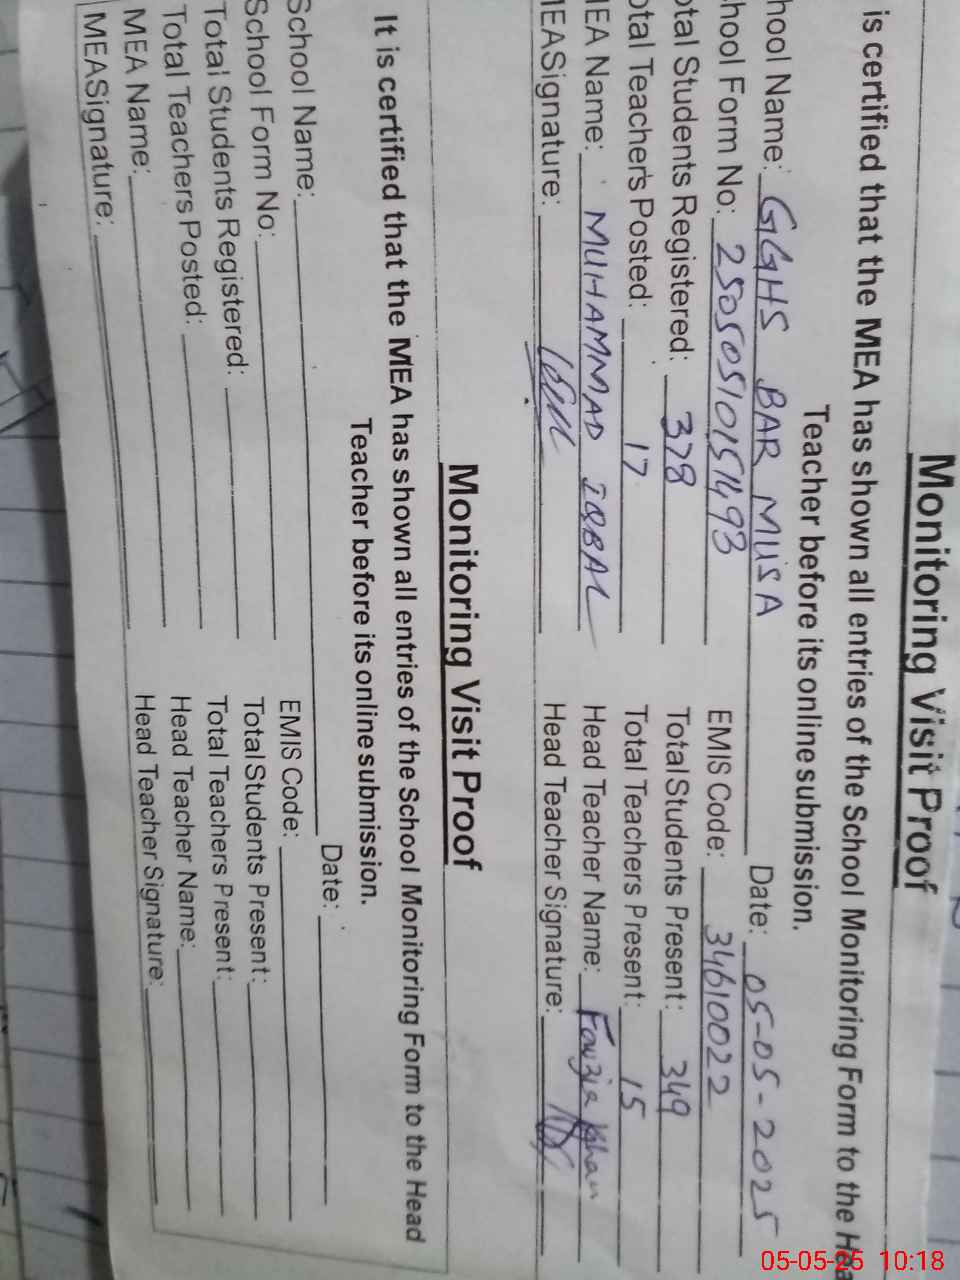 Monitoring Visit Proof
is certified that the MEA has shown all entries of the School Monitoring Form to the Hea
Teacher before its online submission.
hool Name: GGHS BAR MUSA Date: 05-05-2025
hool Form No: 25050510151493 EMIS Code: 34610022
otal Students Registered: 378 Total Students Present: 349
otal Teacher's Posted: 17 Total Teachers Present: 15
IEA Name: MUHAMMAD IQBAL Head Teacher Name: Fouzia Khan
IEASignature: Head Teacher Signature:
Monitoring Visit Proof
It is certified that the MEA has shown all entries of the School Monitoring Form to the Head
Teacher before its online submission.
School Name: Date:
School Form No: EMIS Code:
Total Students Registered: Total Students Present:
Total Teachers Posted: Total Teachers Present:
MEA Name: Head Teacher Name:
MEASignature: Head Teacher Signature:
05-05-25 10:18